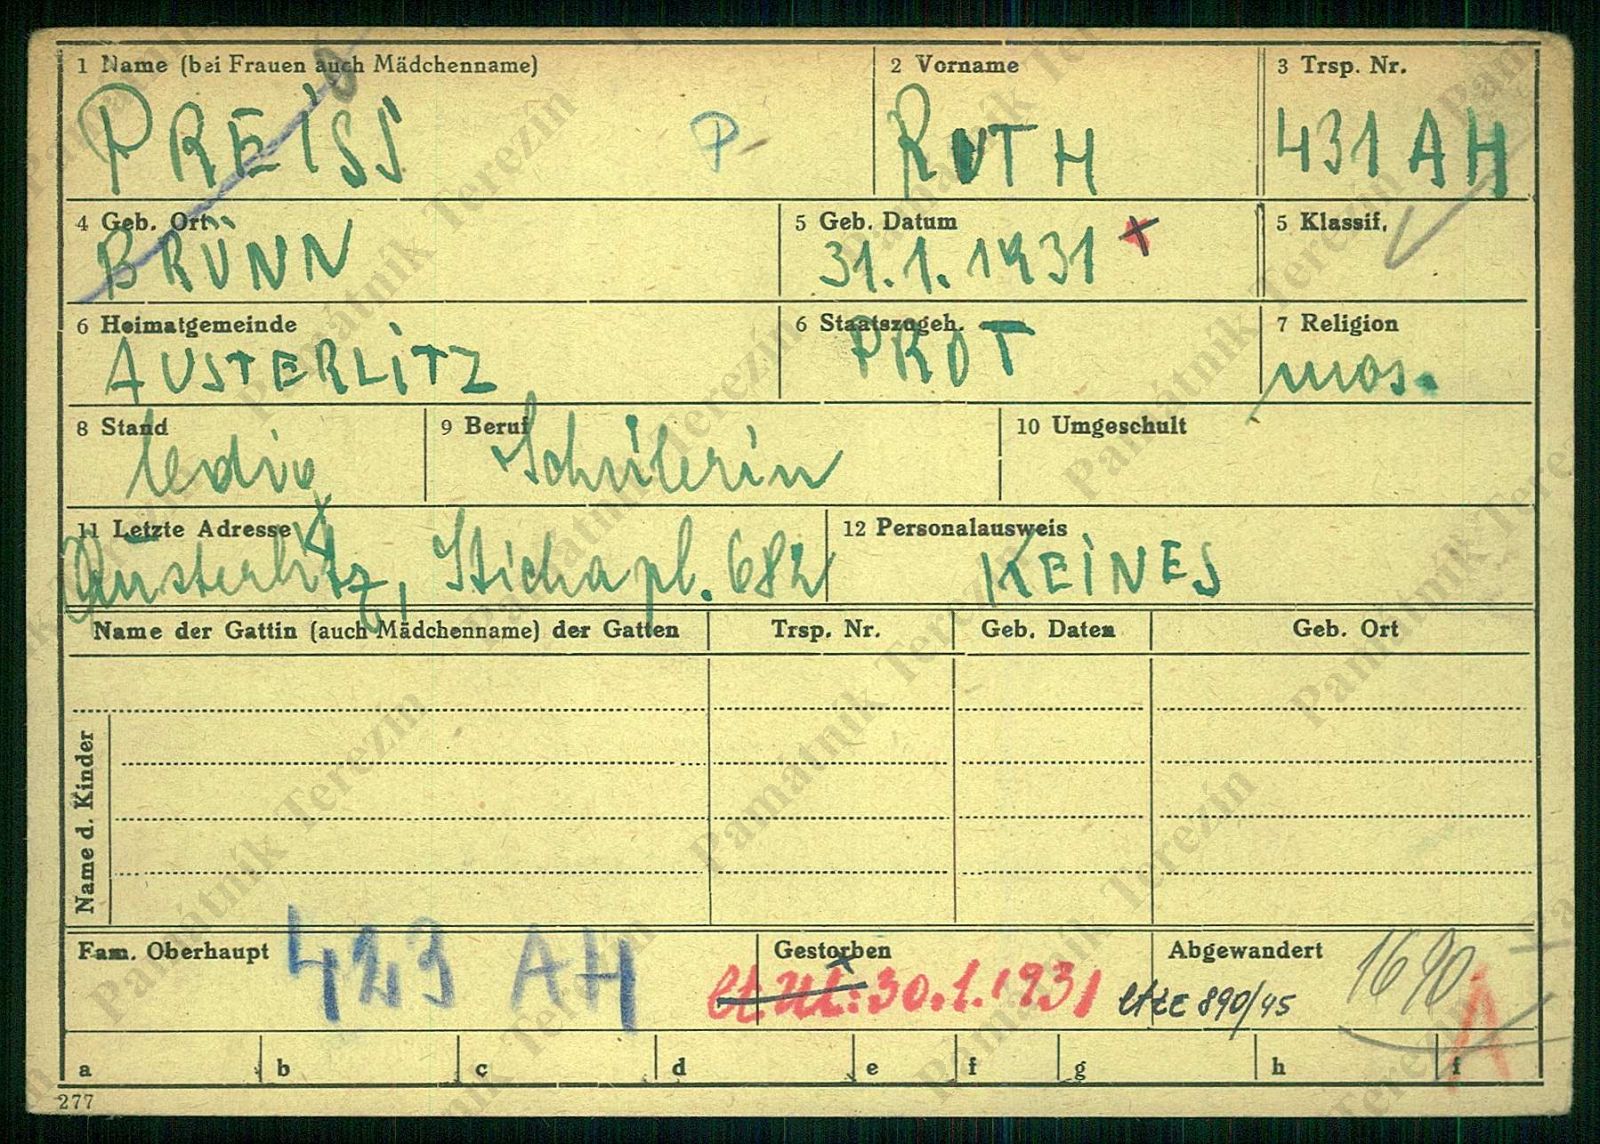 1 Name (bei Frauen auch Mädchenname)
PREISS
P
2 Vorname
RUTH
3 Trsp. Nr.
431 AH
4 Geb. Ort
BRÜNN
5 Geb. Datum
31.1.1931
5 Klassif.
6 Heimatgemeinde
AUSTERLITZ
6 Staatszugeh.
PROT
7 Religion
mos.
8 Stand
ledig
9 Beruf
Schülerin
10 Umgeschult
11 Letzte Adresse
Austerlitz, Stichapl. 682
12 Personalausweis
KEINES
Name der Gattin (auch Mädchenname) der Gatten
Trsp. Nr.
Geb. Daten
Geb. Ort
Name d. Kinder
Fam. Oberhaupt
423 AH
Gestorben
30.1.1931
890/45
Abgewandert
1690
A
a b c d e f g h f
277
Památník Terezín